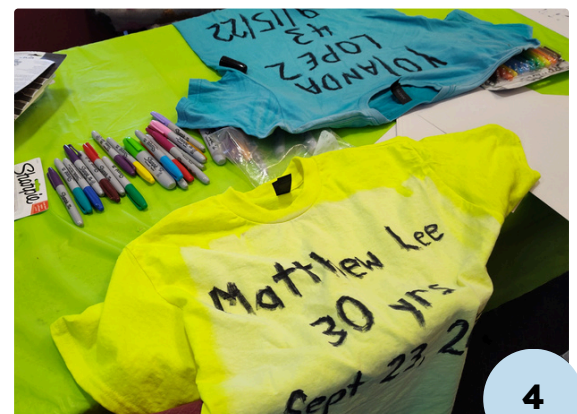 YOLANDA
LOPEZ
43
9/15/22
Sharpie
Matthew Lee
30 yrs
Sept 23, 2
4